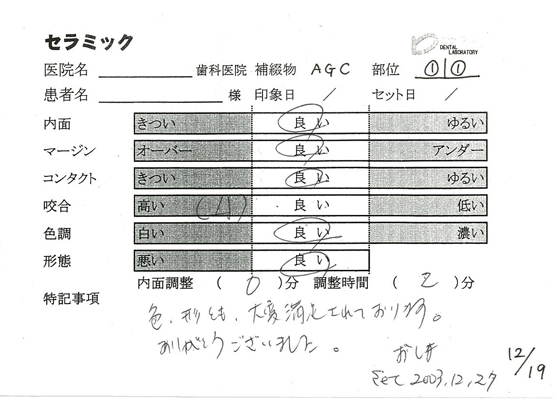 セラミック
DENTAL LABORATORY
医院名 歯科医院 補綴物 AGC 部位 ① ①
患者名 様 印象日 / セット日 /
内面 きつい 良い ゆるい
マージン オーバー 良い アンダー
コンタクト きつい 良い ゆるい
咬合 高い 良い 低い
色調 白い 良い 濃い
形態 悪い 良い
内面調整 ( 0 )分 調整時間 ( 2 )分
特記事項
色、形とも、大変満足されております。
ありがとうございました。
12/19
2003.12.27